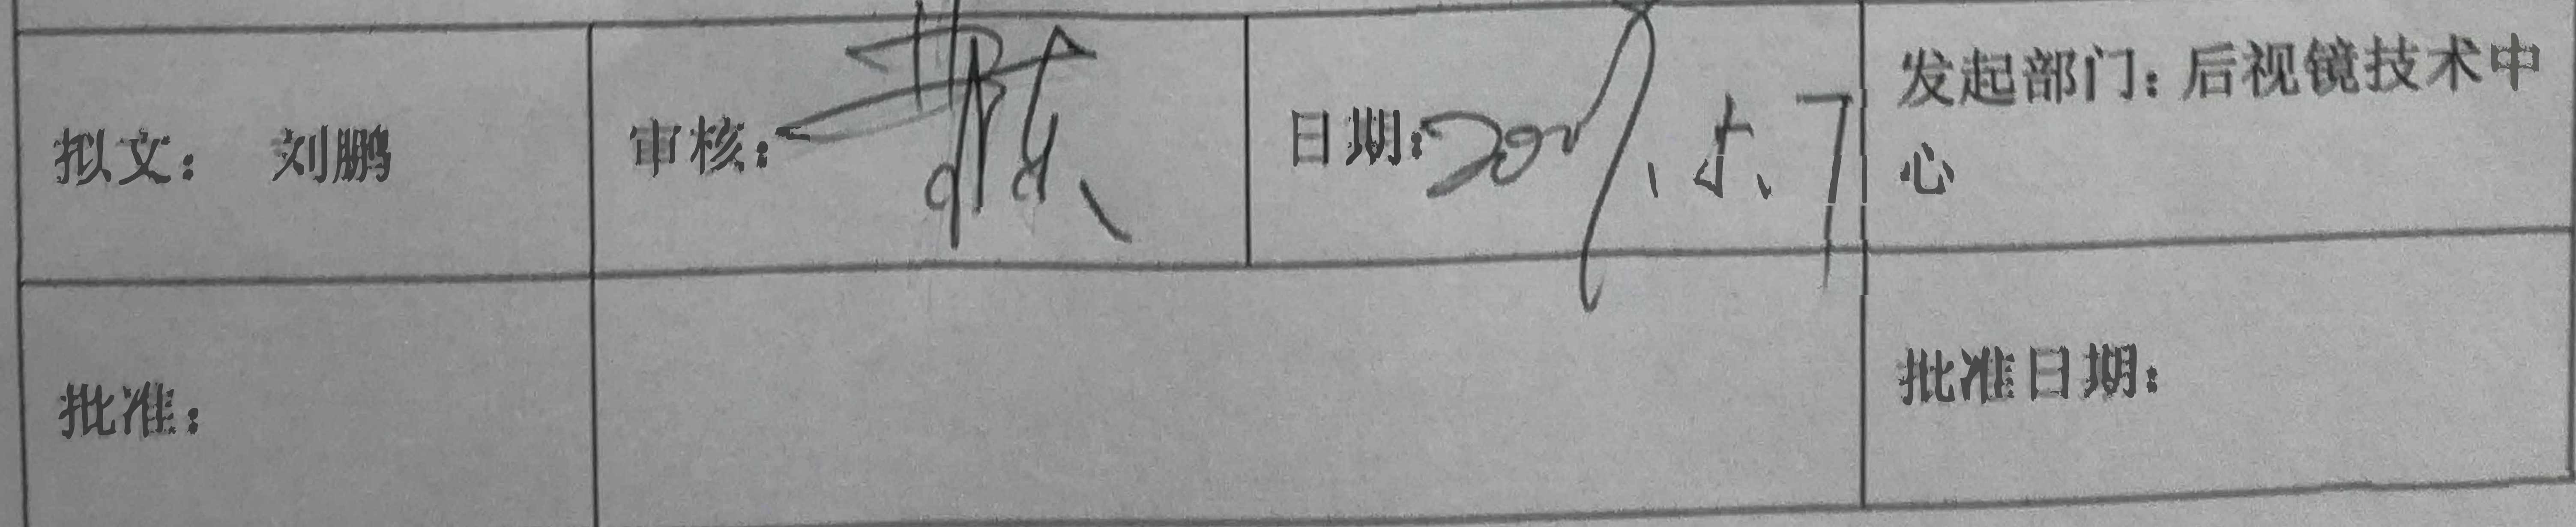 拟文： 刘鹏
审核：
日期：
发起部门：后视镜技术中
心
批准：
批准日期：